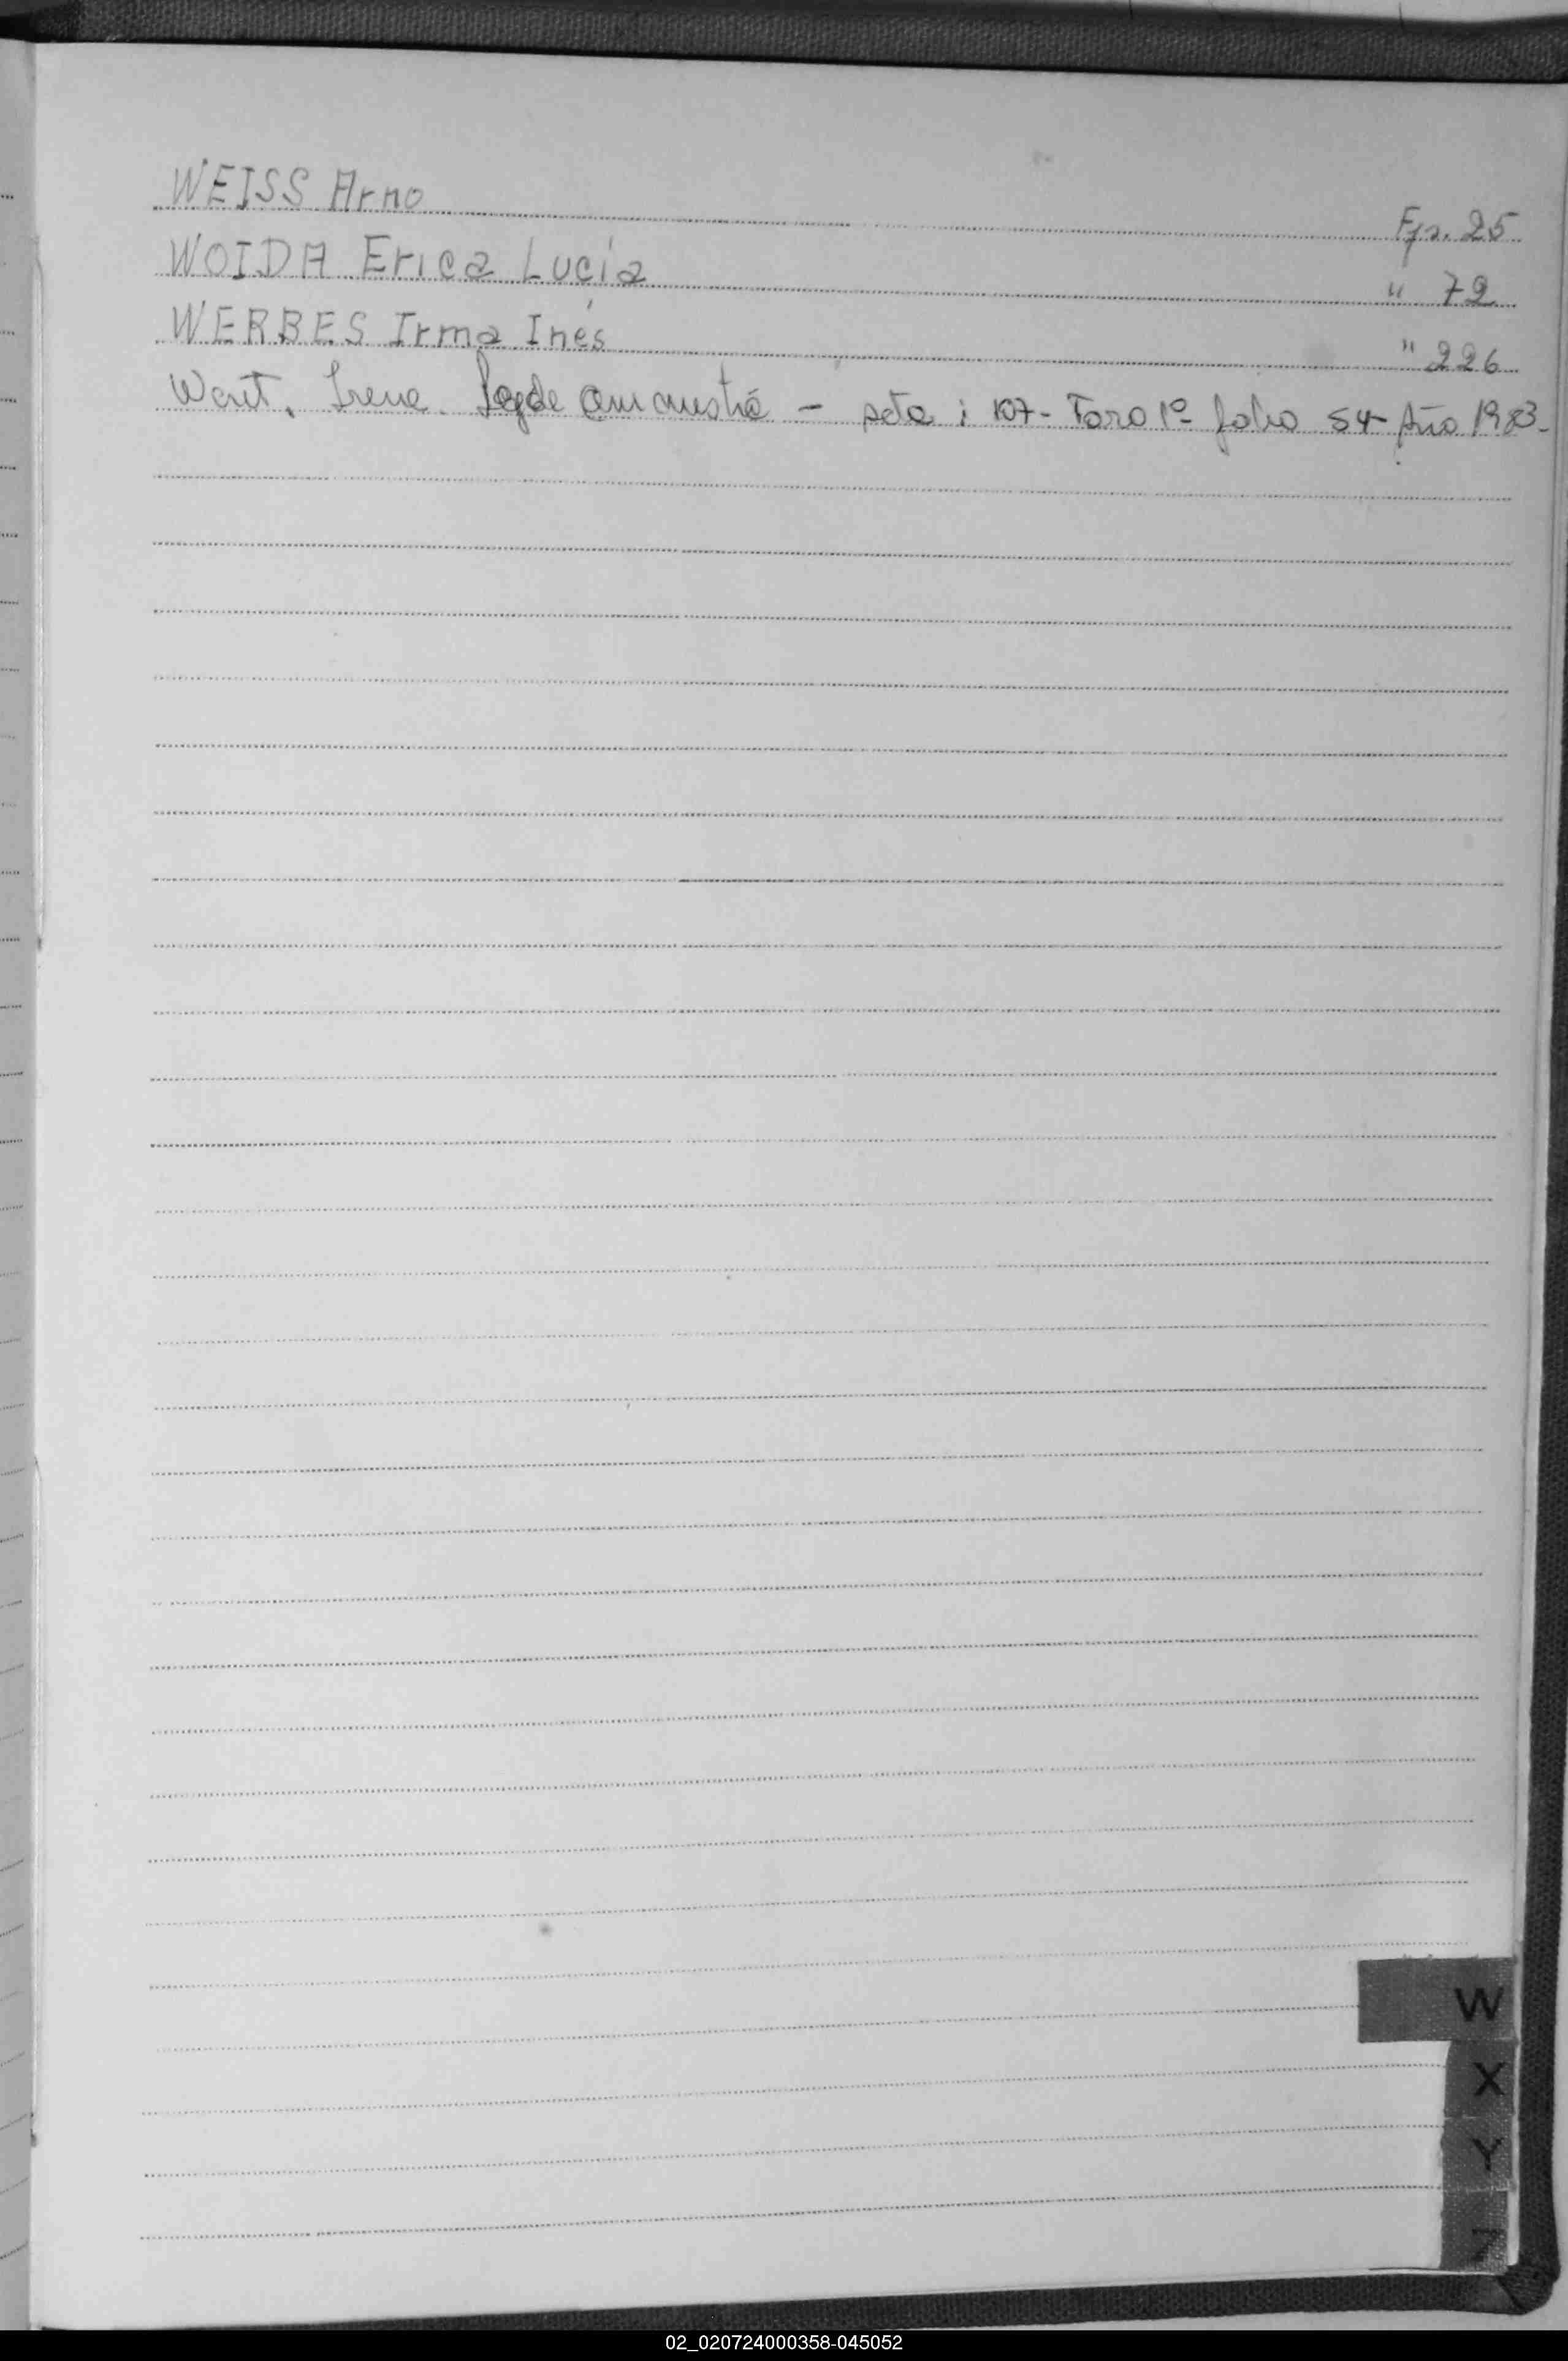 WEISS Arno Fjs. 25
WOIDA Erica Lucía " 72
WERBES Irma Inés " 226
Irene. - acta : 107- Tomo 1º folio 54 Año 1983-
W
X
Y
Z
02_020724000358-045052